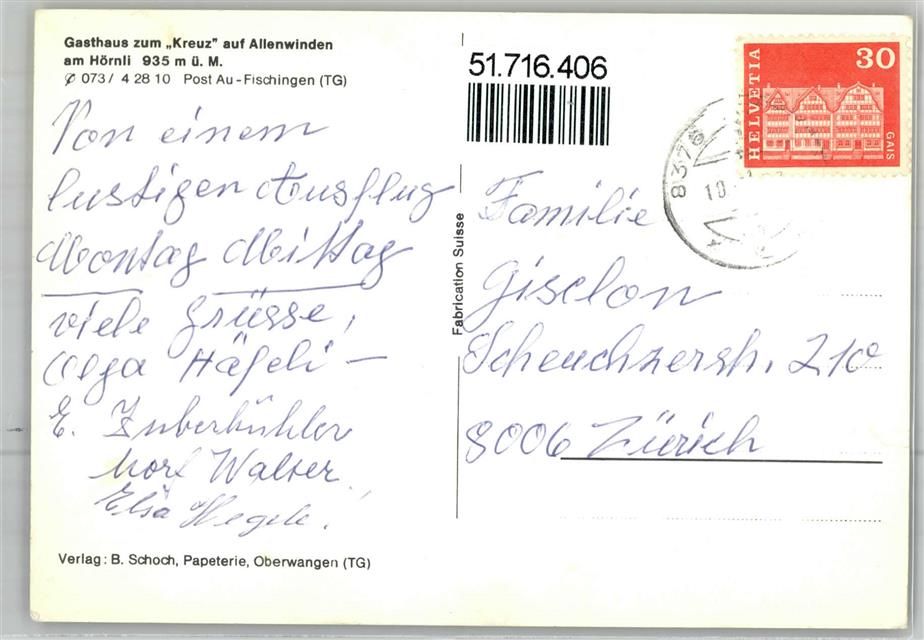 Gasthaus zum „Kreuz" auf Allenwinden
am Hörnli 935 m ü. M.
✆ 073 / 4 28 10 Post Au-Fischingen (TG)
Von einem
lustigen Ausflug
Montag Mittag
viele Grüsse,
Olga Häfeli –
E. Zuberbühler
Morf Walter
Elsa Hegele!
Verlag: B. Schoch, Papeterie, Oberwangen (TG)
Fabrication Suisse
51.716.406
HELVETIA
30
GAIS
8376
10.
Familie
Giselon
Scheuchzerstr. 210
8006 Zürich